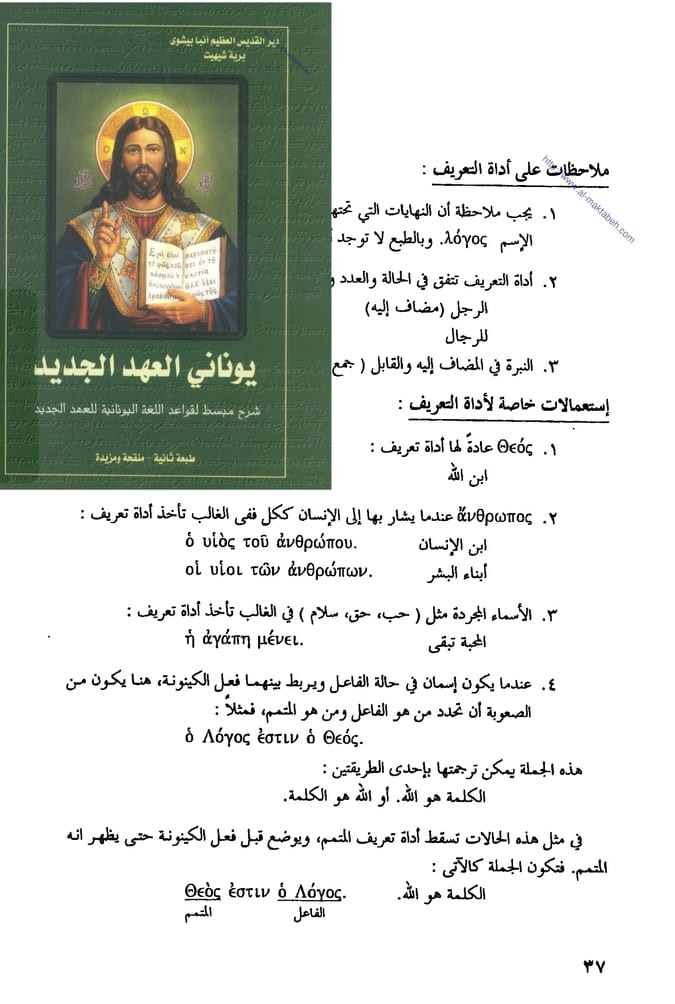 دير القديس العظيم أنبا بيشوى
برية شيهيت
يوناني العهد الجديد
شرح مبسط لقواعد اللغة اليونانية للعهد الجديد
طبعة ثانية - منقحة ومزيدة
ملاحظات على أداة التعريف :
http://www.al-maktabeh.com
١. يجب ملاحظة أن النهايات التي
الإسم λόγος. وبالطبع لا توجد
٢. أداة التعريف تتفق في الحالة والعدد و
الرجل (مضاف إليه)
للرجال
٣. النبرة في المضاف إليه والقابل ( جمع
إستعمالات خاصة لأداة التعريف :
١. Θεός عادةً لها أداة تعريف :
ابن الله
٢. ἄνθρωπος عندما يشار بها إلى الإنسان ككل ففى الغالب تأخذ أداة تعريف :
ابن الإنسان ὁ υἱὸς τοῦ ἀνθρώπου.
أبناء البشر οἱ υἱοι τῶν ἀνθρώπων.
٣. الأسماء المجردة مثل ( حب، حق، سلام ) في الغالب تأخذ أداة تعريف :
المحبة تبقى ἡ ἀγάπη μένει.
٤. عندما يكون إسمان في حالة الفاعل ويربط بينهما فعل الكينونة، هنا يكون من
الصعوبة أن تحدد من هو الفاعل ومن هو المتمم، فمثلاً :
ὁ Λόγος ἐστιν ὁ Θεός.
هذه الجملة يمكن ترجمتها بإحدى الطريقتين :
الكلمة هو الله. أو الله هو الكلمة.
في مثل هذه الحالات تسقط أداة تعريف المتمم، ويوضع قبل فعل الكينونة حتى يظهر انه
المتمم. فتكون الجملة كالآتى :
الكلمة هو الله. Θεὸς ἐστιν ὁ Λόγος.
الفاعل المتمم
٣٧